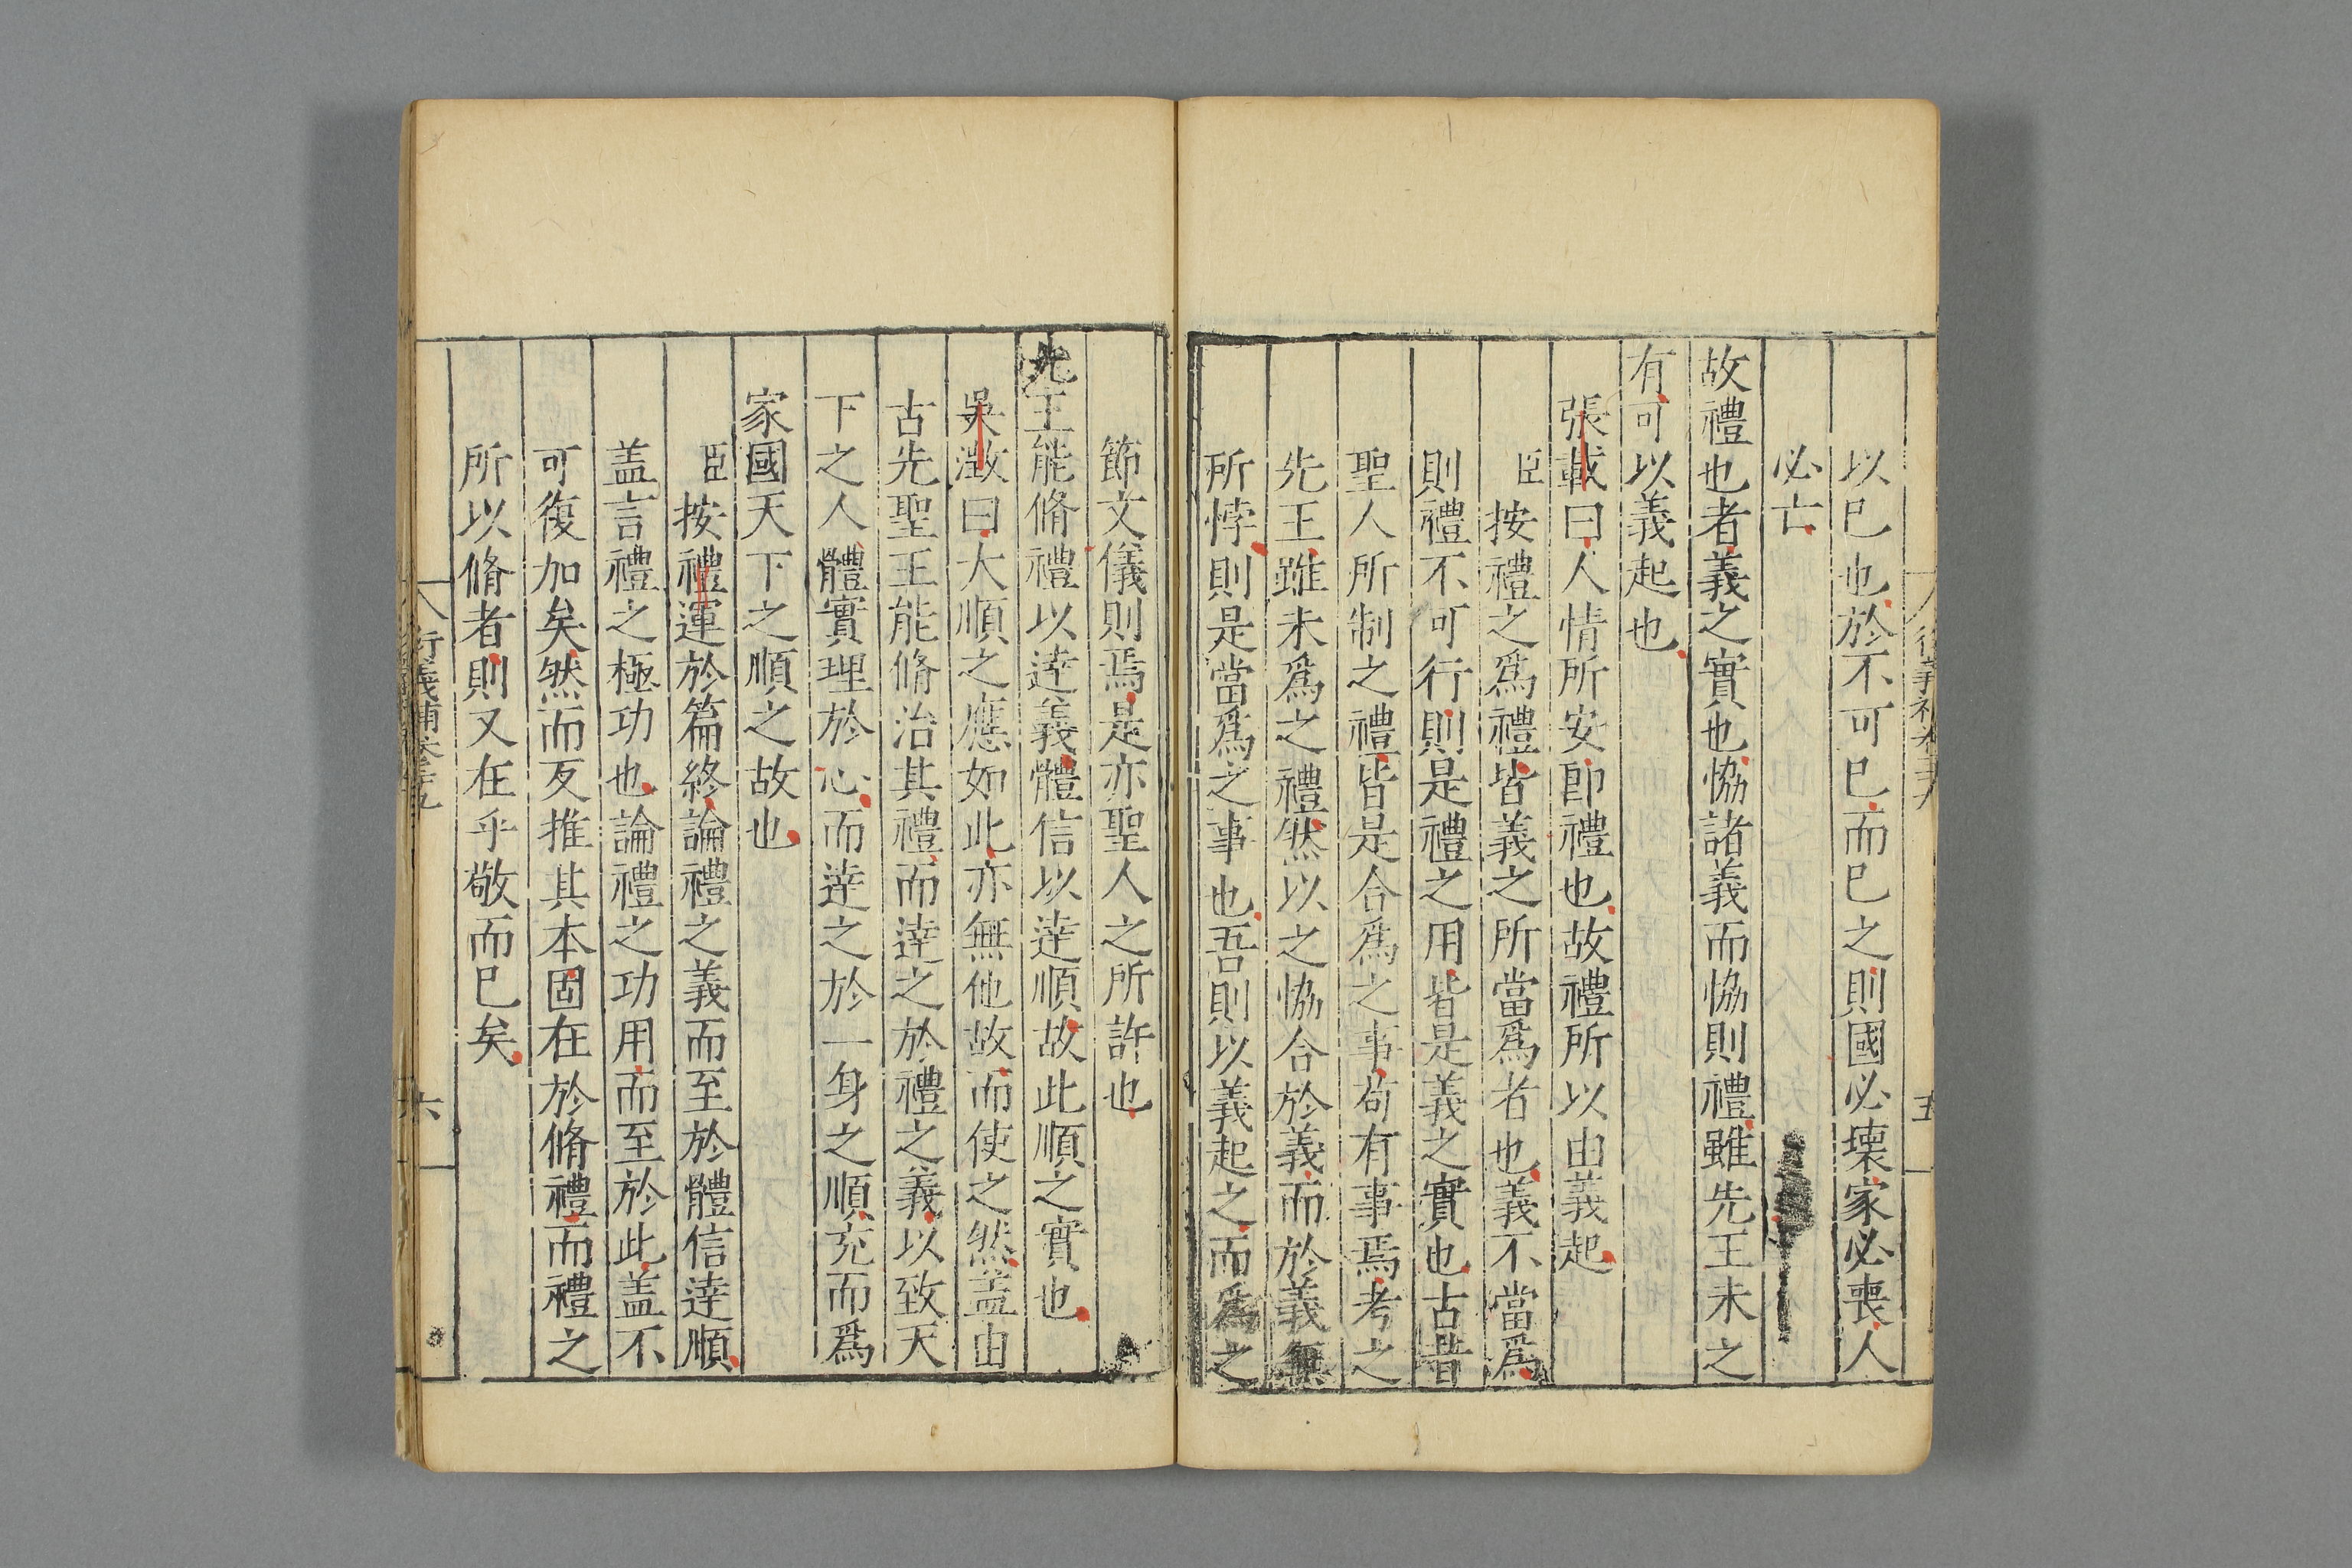 以已也於不可已而已之則國必壞家必喪人
必亡
故禮也者義之實也恊諸義而恊則禮雖先王未之
有可以義起也
張載曰人情所安卽禮也故禮所以由義起
臣按禮之爲禮皆義之所當爲者也義不當爲
則禮不可行則是禮之用皆是義之實也古昔
聖人所制之禮皆是合爲之事苟有事焉考之
先王雖未爲之禮然以之恊合於義而於義無
所悖則是當爲之事也吾則以義起之而爲之
五
節文儀則焉是亦聖人之所許也
先王能脩禮以逹義體信以逹順故此順之實也
吳澂曰大順之應如此亦無他故而使之然盖由
古先聖王能脩治其禮而逹之於禮之義以致天
下之人體實理於心而逹之於一身之順充而爲
家國天下之順之故也
臣按禮運於篇終論禮之義而至於體信逹順
盖言禮之極功也論禮之功用而至於此盖不
可復加矣然而反推其本固在於脩禮而禮之
所以脩者則又在乎敬而已矣
衍義補
六